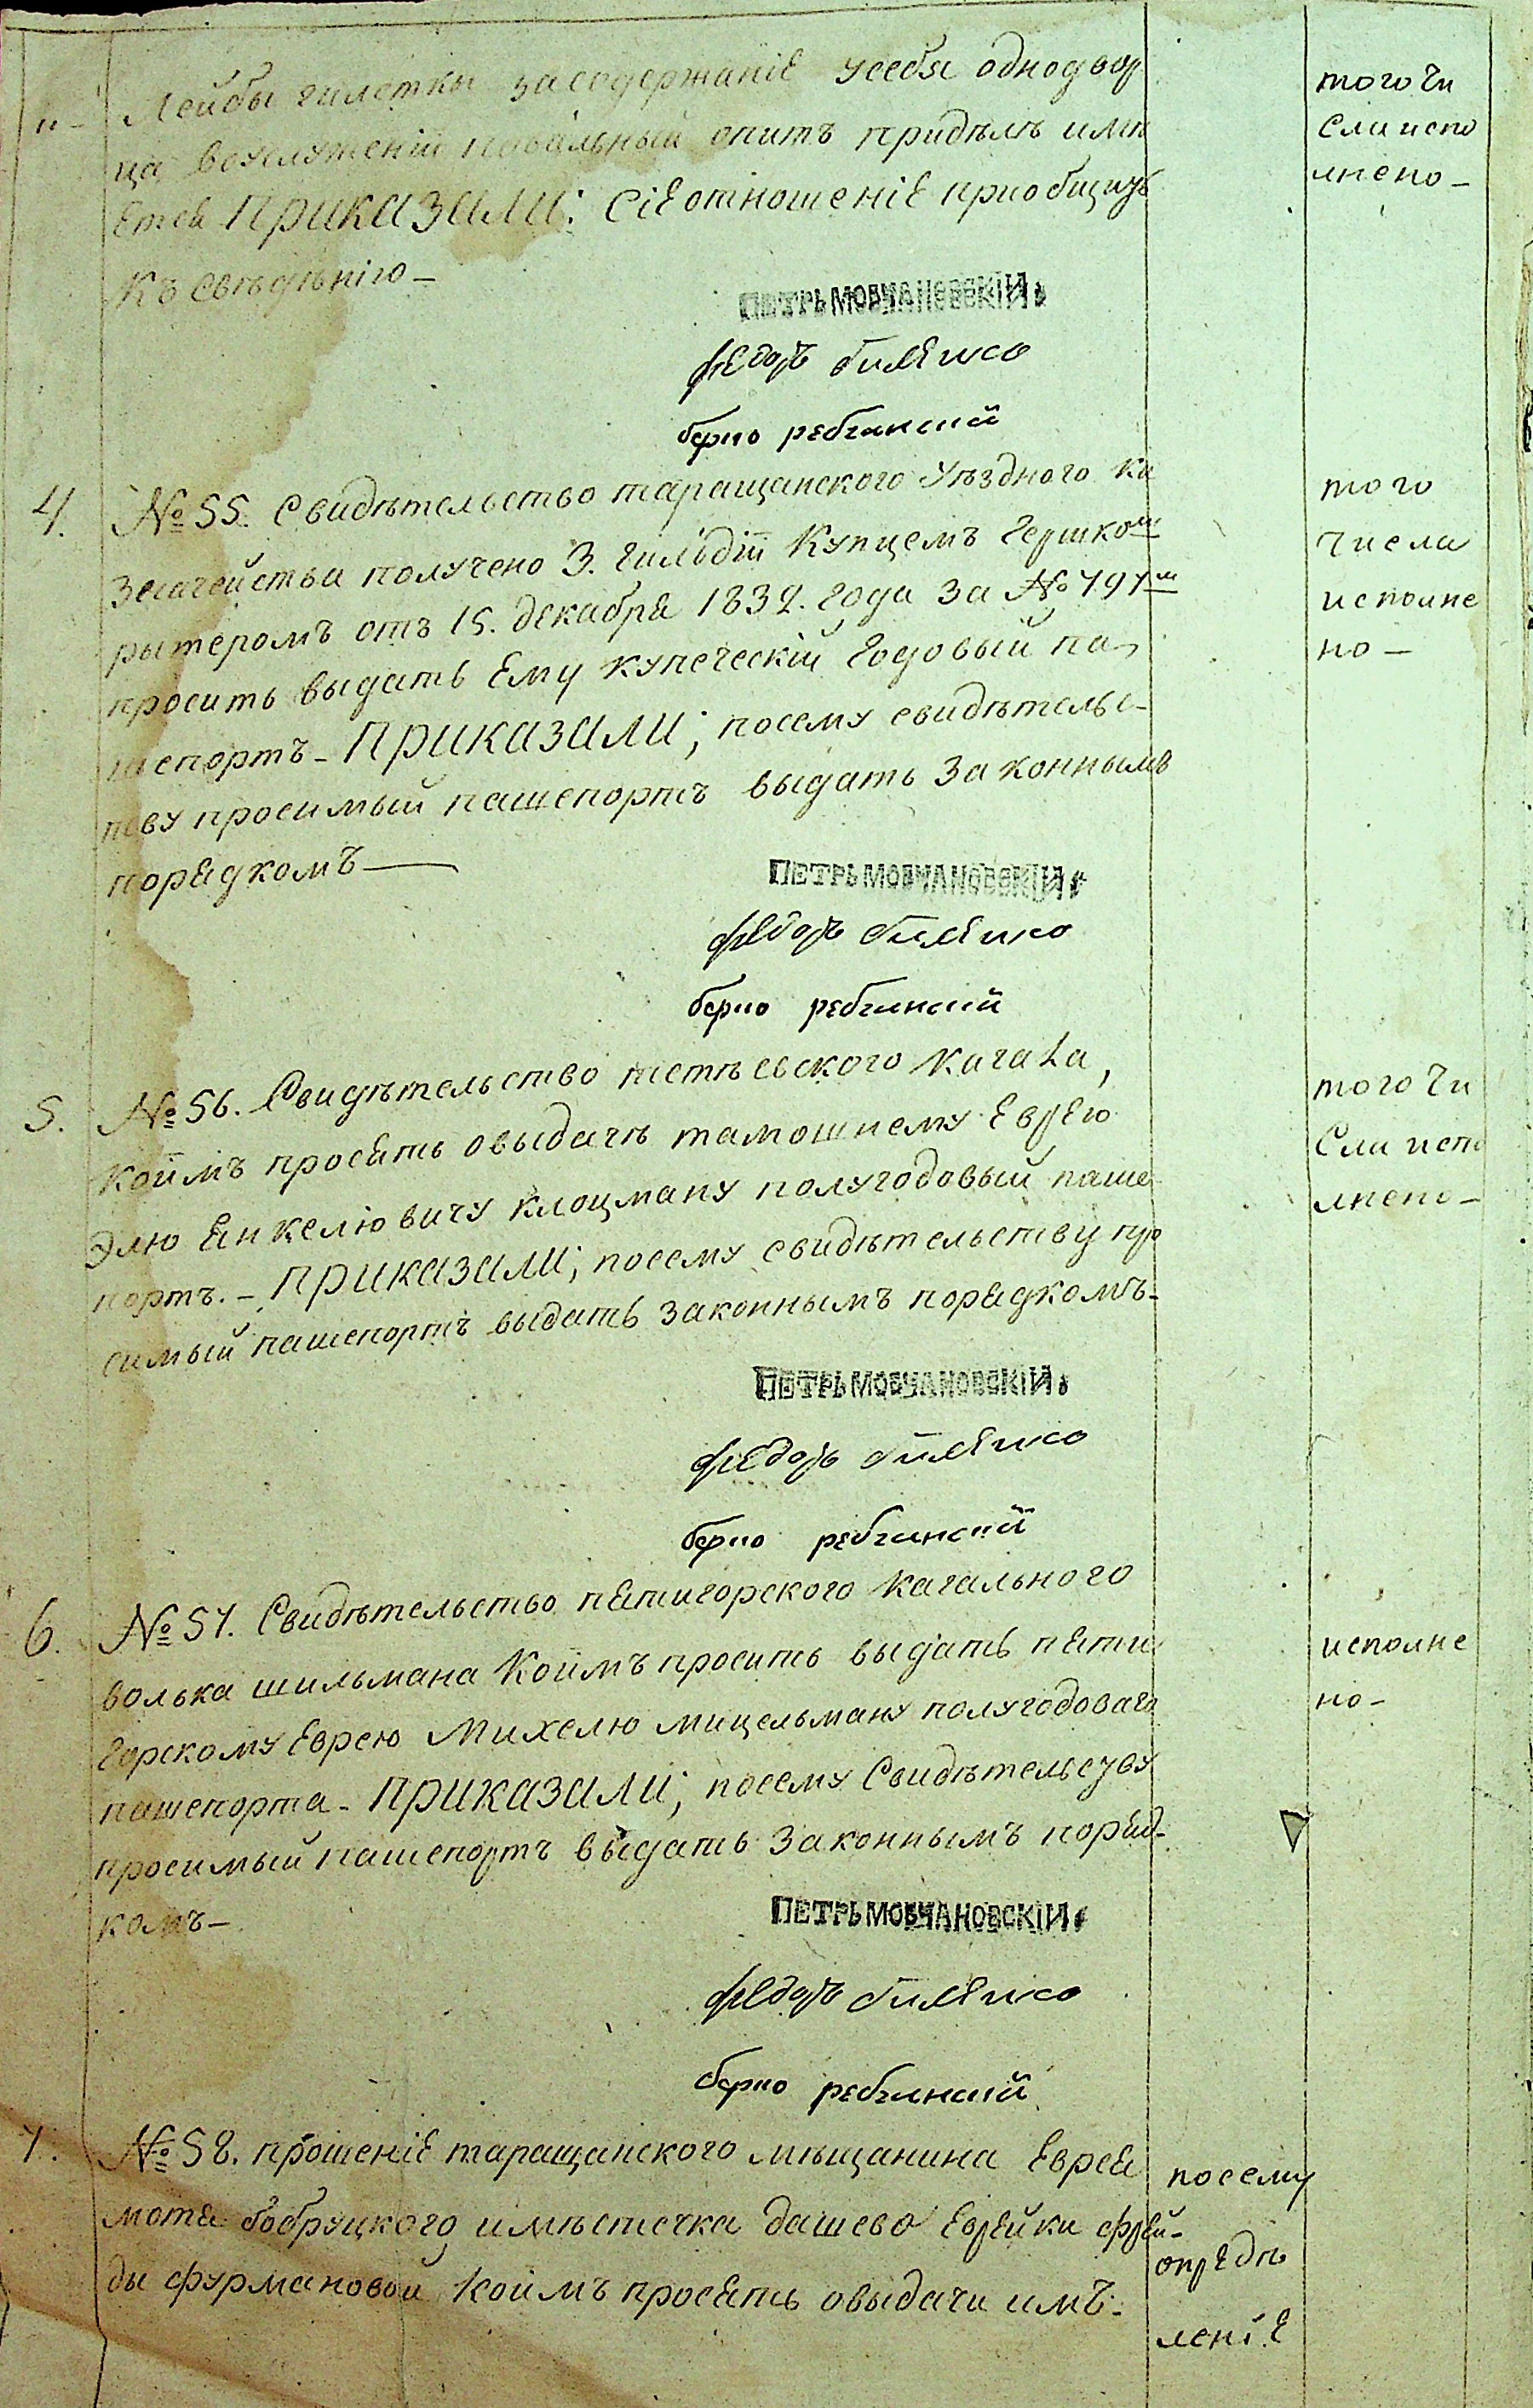 Лейбы гилетки засодержаніе усебя однодвор
ца воуслуженіи повальный опитъ придѣлѣ имѣ
етей ПРИКАЗАЛИ: Сіе отношеніе приобщить
Къ свѣдѣнію –
того Чи
сла испо
лнено –
ПЕТРЬ МОВЧАНОВСКІЙ
федоръ
берко
4. № 55. Свидѣтельство таращанского Уѣздного Ка
значейства получено 3. Гильдіи Купцемъ Гершкомъ
рытеромъ отъ 15. декабря 1832. года за № 797м
просить выдать Ему купеческій Годовый па
шепортъ – ПРИКАЗАЛИ; посему свидѣтельс-
тву просимый пашепортъ выдать Законнымъ
порядкомъ —
того
Числа
исполне
но –
ПЕТРЬ МОВЧАНОВСКІЙ
федоръ
берко
5. № 56. Свидѣтельство тетѣевского Кагала,
коимъ просять овыдачѣ тамошнему Еврею
Элю Янкелювичу клоцману полугодовый паше
портъ. – ПРИКАЗАЛИ; посему свидѣтельству про
симый пашепортъ выдать законнымъ порядкомъ-
того Чи
Сла испо
лнено –
ПЕТРЬ МОВЧАНОВСКІЙ
федоръ
берко
6. № 57. Свидѣтельство пятигорского Кагального
волька шильмана Коимъ просить выдать пяти
Горскому Еврею Михелю мицельману полугодоваго
пашепорта – ПРИКАЗАЛИ; посему Свидѣтельству
просимый пашепортъ выдать Законнымъ поряд-
комъ –
исполне
но –
ПЕТРЬ МОВЧАНОВСКІЙ
федоръ
берко
7. № 58. прошеніе таращанского мѣщанина Еврея
мотя бобруцкого имѣстечка дашево Еврейки фрей-
ды фурмановой Коимъ просять овыдачи имъ-
посему
опредѣ
леніе